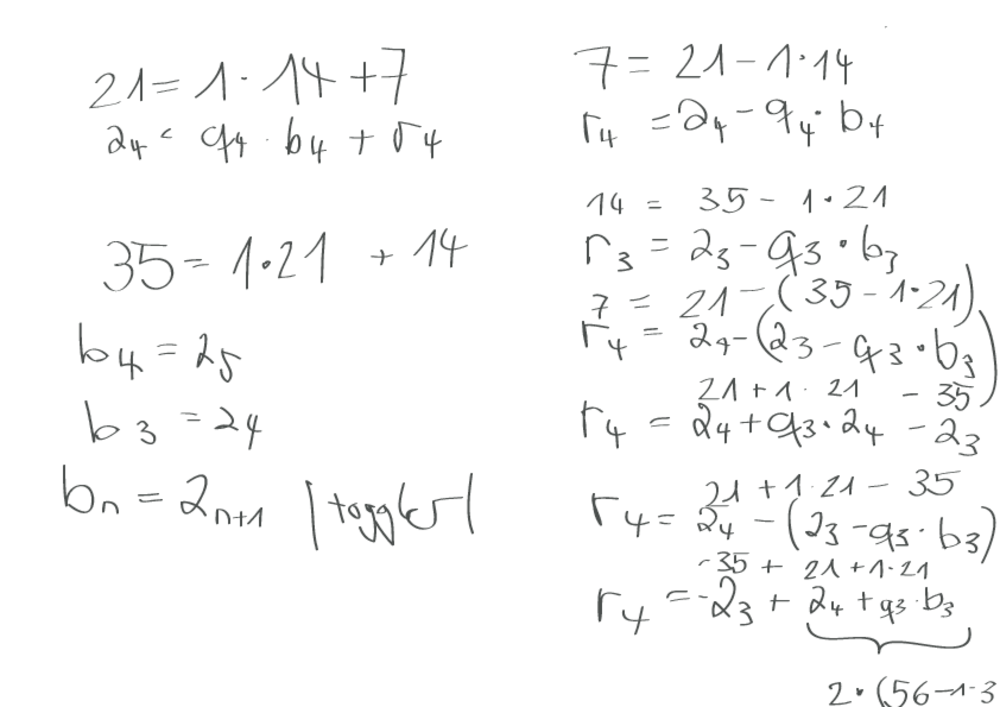 21 = 1 · 14 + 7
a₄ = q₄ · b₄ + r₄
35 = 1 · 21 + 14
b₄ = a₅
b₃ = a₄
bₙ = aₙ₊₁
7 = 21 - 1 · 14
r₄ = a₄ - q₄ · b₄
14 = 35 - 1 · 21
r₃ = a₃ - q₃ · b₃
7 = 21 - (35 - 1 · 21)
r₄ = a₄ - (a₃ - q₃ · b₃)
21 + 1 · 21 - 35
r₄ = a₄ + q₃ · a₄ - a₃
21 + 1 · 21 - 35
r₄ = a₄ - (a₃ - q₃ · b₃)
-35 + 21 + 1 · 21
r₄ = -a₃ + a₄ + q₃ · b₃
2 · (56 - 1 · 3